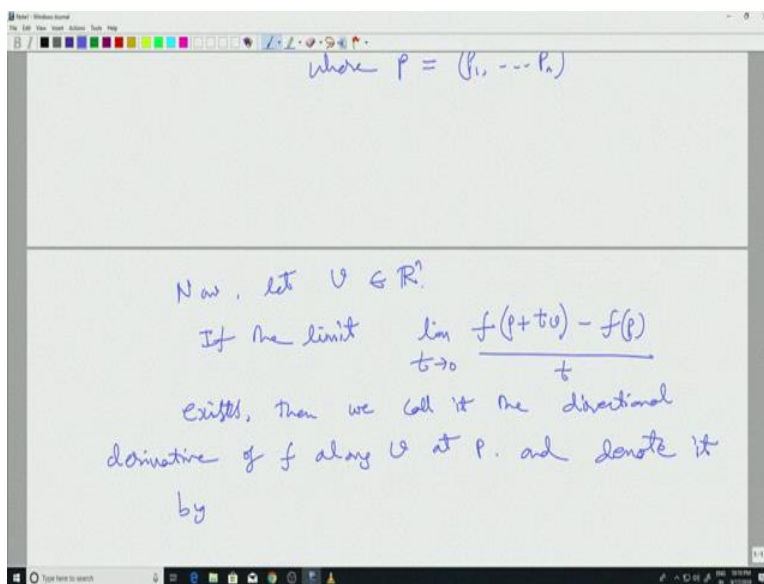 Note1 - Windows Journal
File Edit View Insert Actions Tools Help
where p = (p₁, --- pₙ)
Now, let v ∈ ℝⁿ.
If the limit lim t→0 (f(p+tv) − f(p))/t
exists, then we call it the directional
derivative of f along v at p. and denote it
by
Type here to search